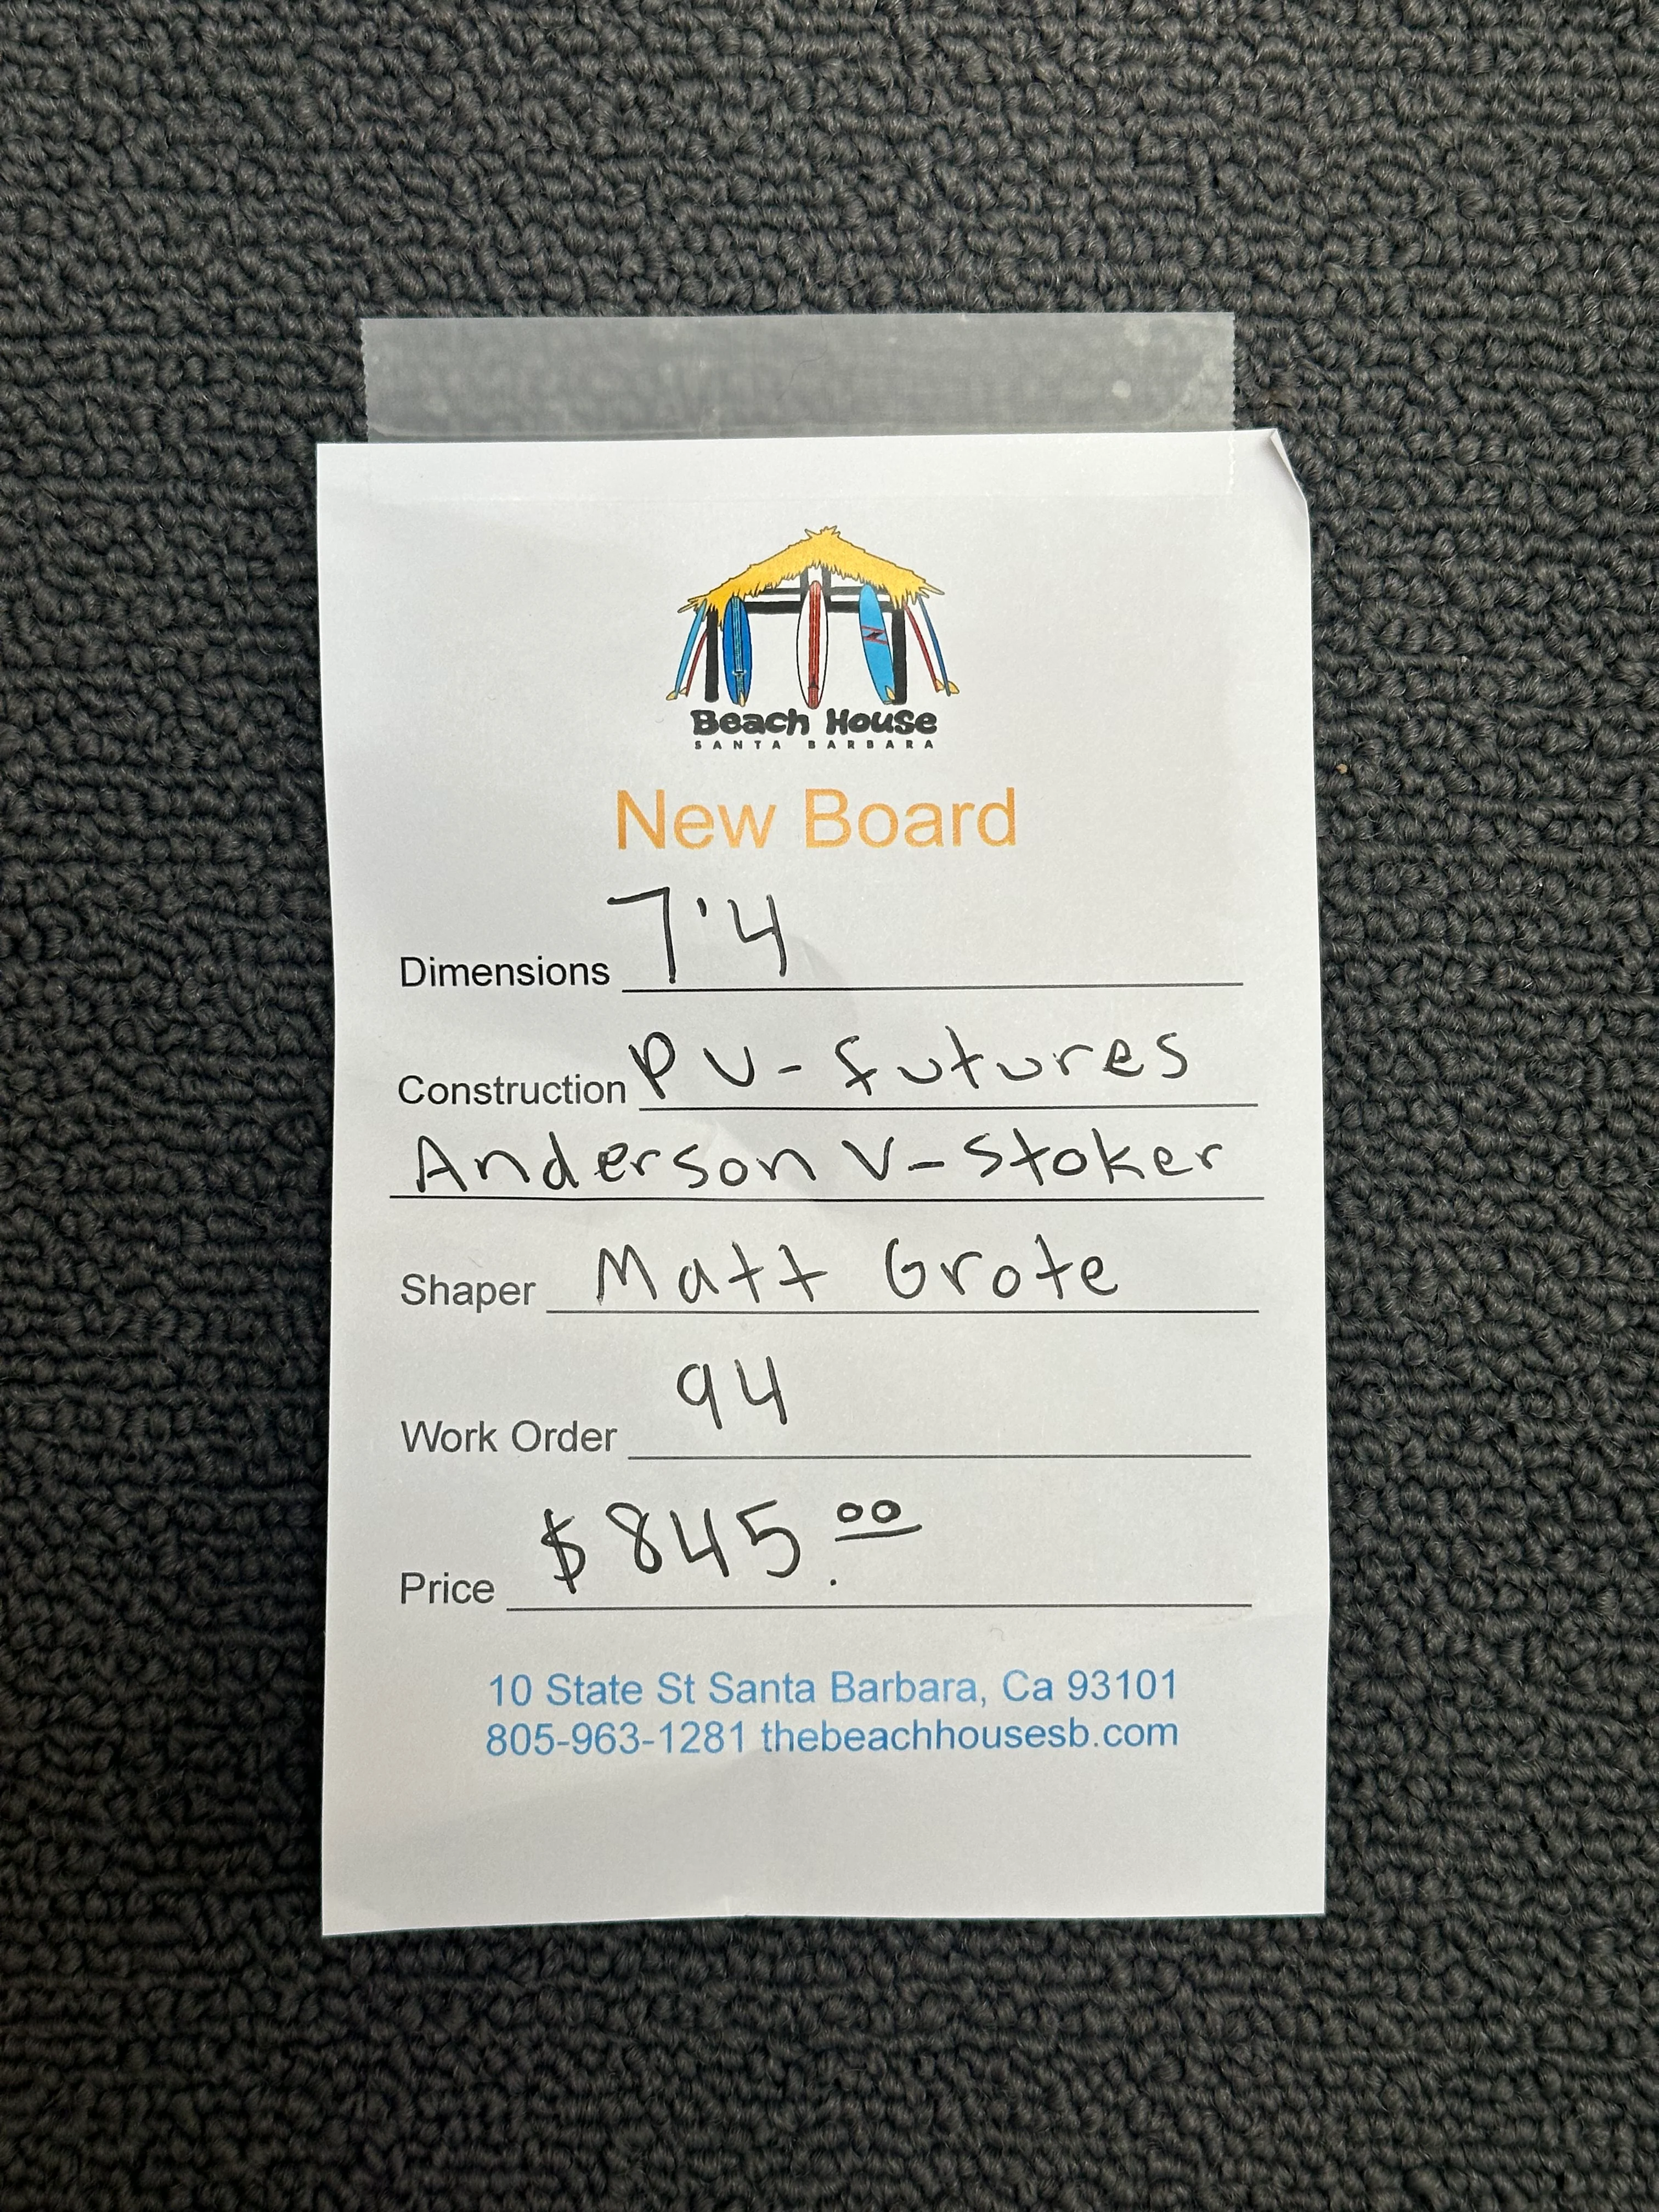 Beach House
SANTA BARBARA
New Board
Dimensions 7'4
Construction PU-futures
Anderson V-Stoker
Shaper Matt Grote
Work Order 94
Price $845.00
10 State St Santa Barbara, Ca 93101
805-963-1281 thebeachhousesb.com